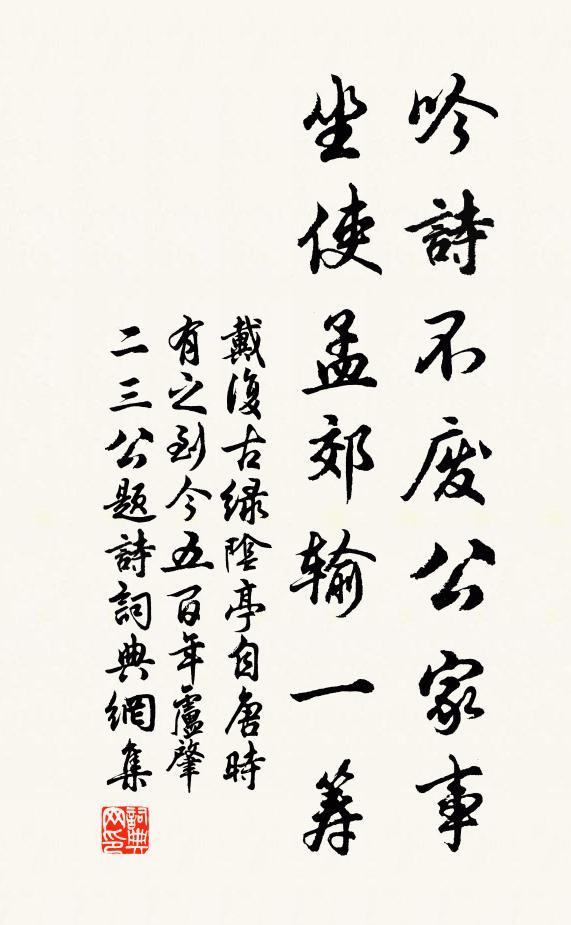 吟詩不废公家事
坐使孟郊输一筹
戴復古緑陰亭自唐時
有之到今五百年盧肇
二三公题詩詞典網集
詞典网印